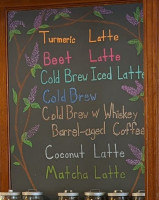 Turmeric Latte
Beet Latte
Cold Brew Iced Latte
Cold Brew
Cold Brew w Whiskey
Barrel-aged Coffee
Coconut Latte
Matcha Latte